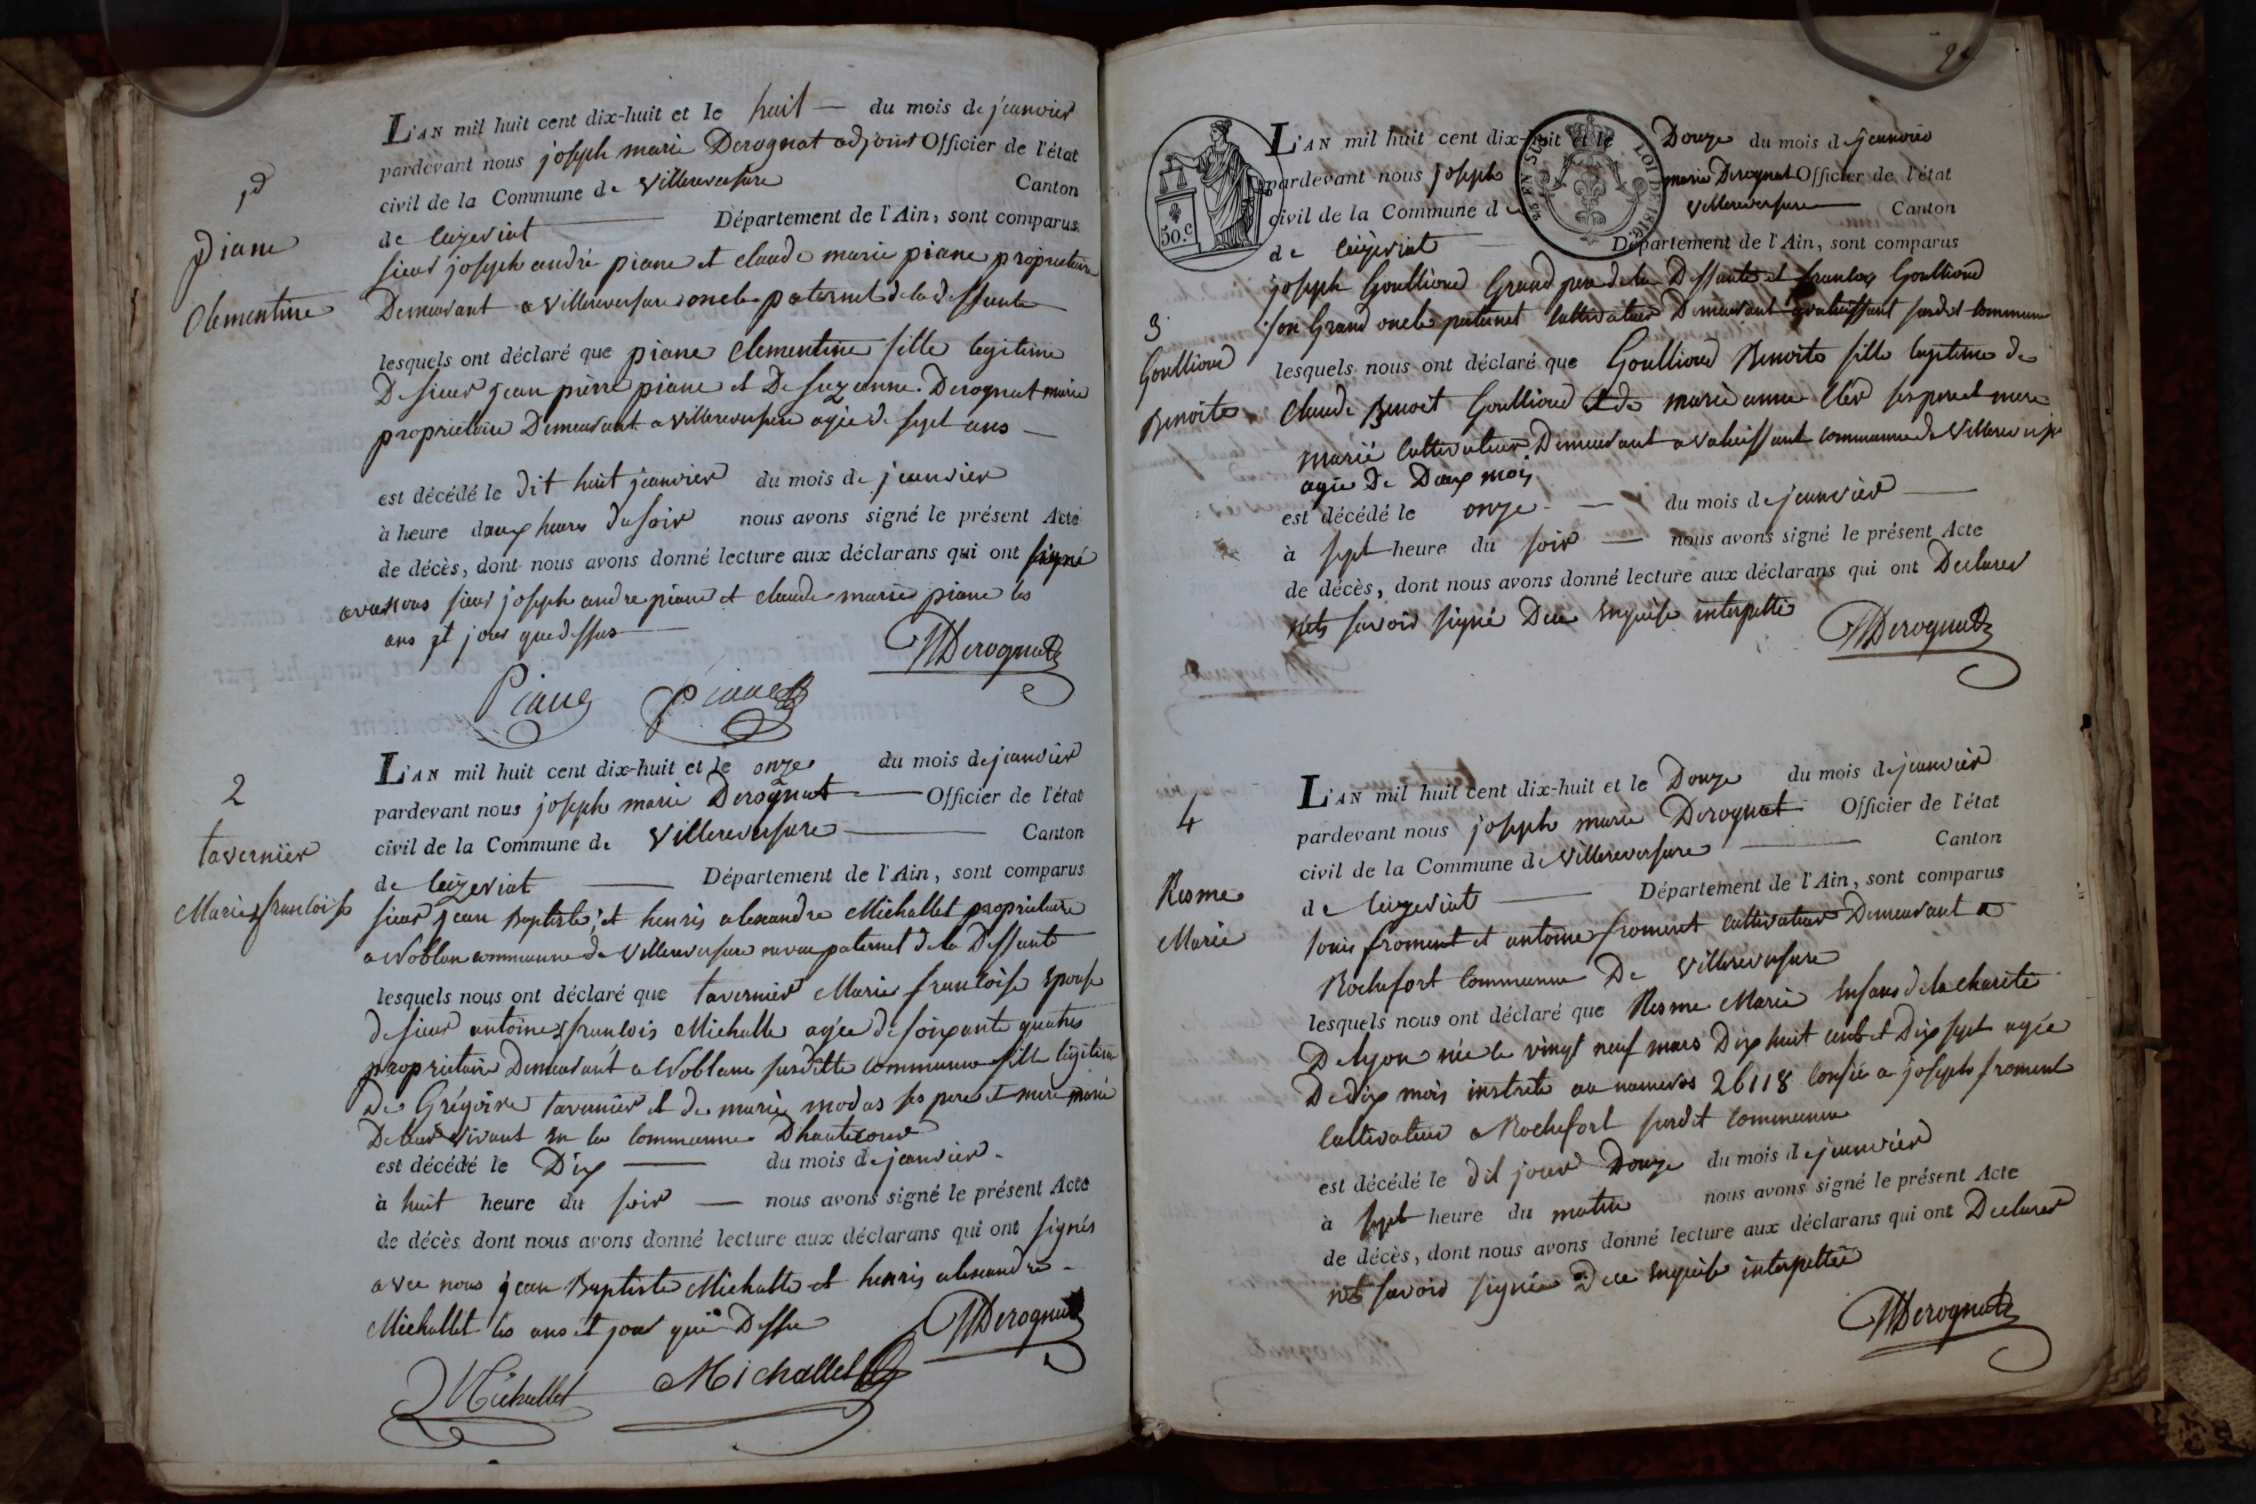 1er
piane
Clementine
L'AN mil huit cent dix-huit et le huit du mois de jeanvier
pardevant nous joseph marie Derognat adjoint Officier de l'état
civil de la Commune de Villereversure Canton
de Ceizeriat Département de l'Ain, sont comparus
sieur joseph andré piane et claude marie piane proprietaire
Demeurant a Villereversure oncle paternel de la deffunte
lesquels ont déclaré que piane Clementine fille legitime
De sieur jean pierre piane et De suzanne Derognat marié
proprietaire Demeurant a Villereversure agée de sept ans
est décédé le dit huit jeanvier du mois de jeanvier
à heure deux heures du soir nous avons signé le présent Acte
de décès, dont nous avons donné lecture aux déclarans qui ont signé
avec nous sieur joseph andre piane et claude marie piane les
ans et jour que dessus
Derognat
Piane Piane
2
tavernier
Marie françoise
L'AN mil huit cent dix-huit et le onze du mois de jeanvier
pardevant nous joseph marie Derognat Officier de l'état
civil de la Commune de Villereversure Canton
de Ceizeriat Département de l'Ain, sont comparus
sieur jean Baptiste et henris alexandre Michallet proprietaire
a Noblan commune de Villereversure neveu paternel de la Deffunte
lesquels nous ont déclaré que tavernier Marie françoise Epouse
de sieur antoine françois Michalle agée de soixante quatres
proprietaire Demeurant a Noblane surditte commune fille legitime
De Grégoire tavernier et de marie modas ses pere et mere marié
De leur vivant en la commune D'hautecour
est décédé le Dix du mois de jeanvier
à huit heure du soir nous avons signé le présent Acte
de décès dont nous avons donné lecture aux déclarans qui ont signés
avec nous jean Baptiste Michalle et henris alexandre
Michallet les ans et jour que Dessu
Derognat
Michallet Michallet
50.c
EN SUS LOI DE 1816
3
Goullioud
Benoite
L'AN mil huit cent dix-huit et le Douze du mois de jeanvier
pardevant nous joseph marie Derognat Officier de l'état
civil de la Commune de Villereversure Canton
de Ceizeriat Département de l'Ain, sont comparus
joseph Goullioud Grand pere de la Deffunte et francois Goullioud
son Grand oncle paternel Cultivateur Demeurant a valuissant surdit commune
lesquels nous ont déclaré que Goullioud Benoite fille legitime de
Claude Benoit Goullioud et de marie anne Clér ses pere et mere
marié Cultivateur Demeurant a Valuissant commune de Villereversure
agée De Deux mois
est décédé le onze du mois de jeanvier
à sept heure du soir nous avons signé le présent Acte
de décès, dont nous avons donné lecture aux déclarans qui ont Declarer
nets savoir signé Dece Enquise interpellé
Derognat
4
Resme
Marie
L'AN mil huit cent dix-huit et le Douze du mois de jeanvier
pardevant nous joseph marie Derognat Officier de l'état
civil de la Commune de Villereversure Canton
de Ceizeriat Département de l'Ain, sont comparus
louis froment et antoine froment cultivateur Demeurant a
Rochefort Commune De Villereversure
lesquels nous ont déclaré que Resme Marie Enfans de la charité
De lyon née le vingt neuf mars Dix huit cent et Dix sept agée
De dix mois instrite au numeros 26118 Confiée a joseph froment
Cultivateur a Rochefort surdit Commune
est décédé le dit jour Douze du mois de jeanvier
à sept heure du matin nous avons signé le présent Acte
de décès, dont nous avons donné lecture aux déclarans qui ont Declarer
nets savoir signée Dece Enquise interpellée
Derognat